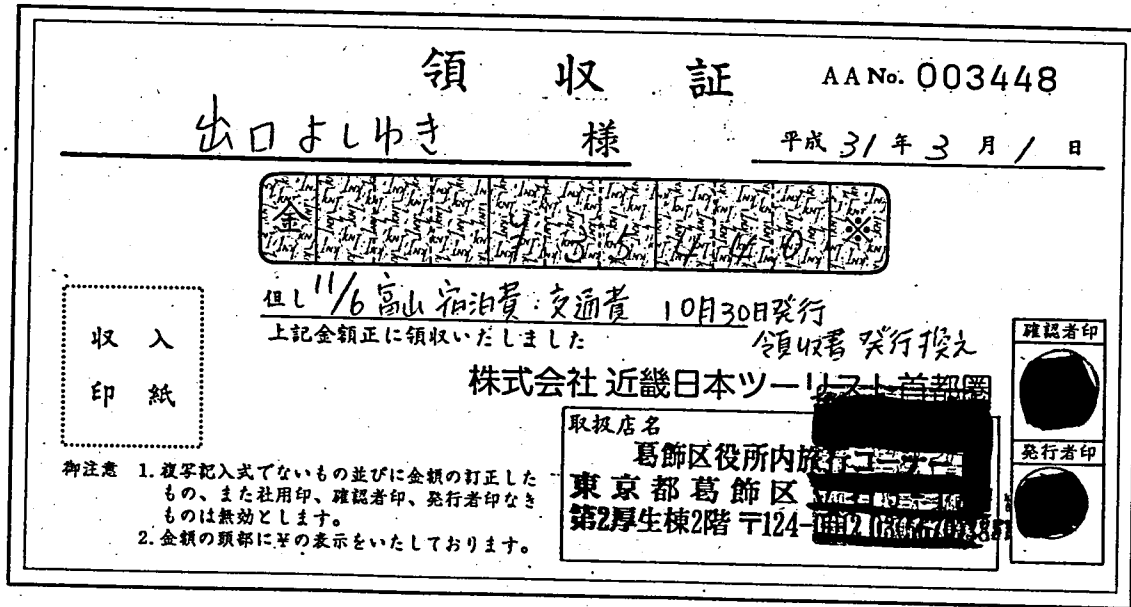 領収証 AA No. 003448
出口よしゆき 様
平成 31 年 3 月 1 日
金 ※
但し 11/6 富山 宿泊費・交通費 10月30日発行
領収書 発行換え
上記金額正に領収いたしました
収入
印紙
株式会社 近畿日本ツーリスト首都圏
取扱店名
葛飾区役所内旅行コーナー
東京都葛飾区
第2厚生棟2階 〒124-
確認者印
発行者印
御注意 1. 複写記入式でないもの並びに金額の訂正した
もの、また社用印、確認者印、発行者印なき
ものは無効とします。
2. 金額の頭部に¥の表示をいたしております。